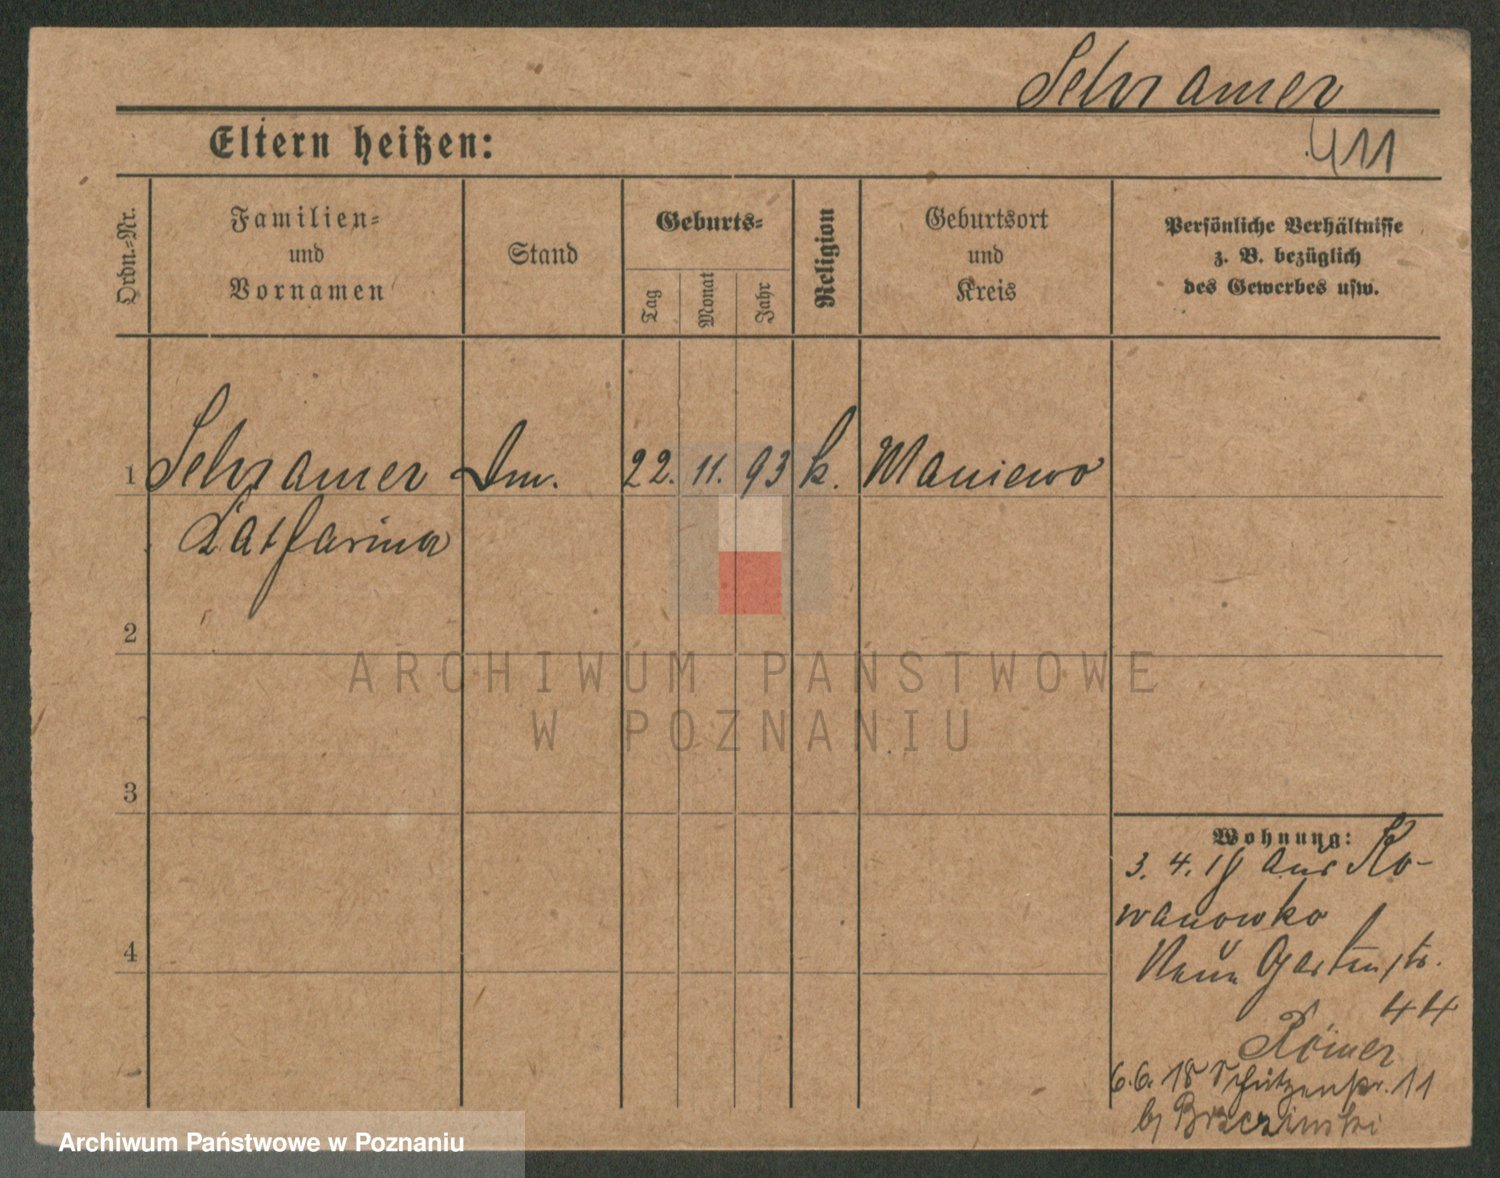 Schramer
411
Eltern heißen:
Ordn.-Nr.
Familien-
und
Vornamen
Stand
Geburts-
Tag
Monat
Jahr
Religion
Geburtsort
und
Kreis
Persönliche Verhältnisse
z. B. bezüglich
des Gewerbes usw.
1 Schramer 22. 11. 93 k. Maniewo
Katharina
2
3
4
ARCHIWUM PAŃSTWOWE
W POZNANIU
Wohnung:
3. 4. 18 aus Ko-
wanowko
Neue Gartenstr.
44
Römer
6. 6. 18 Schützenstr. 11
b/ Brzezinski
Archiwum Państwowe w Poznaniu